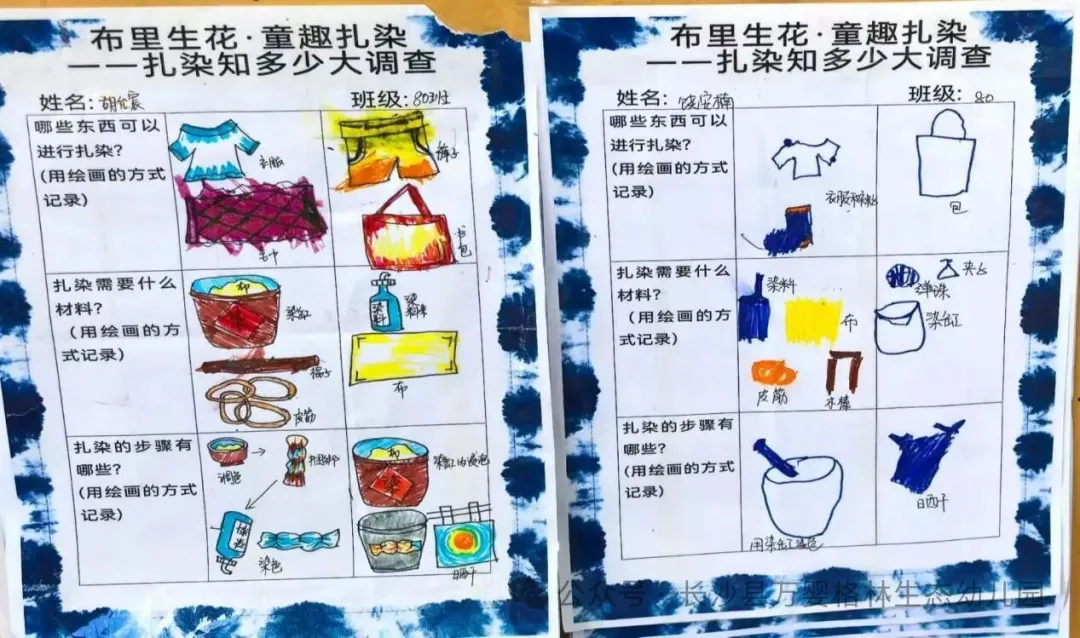 布里生花·童趣扎染
——扎染知多少大调查
姓名:
班级: 803班
哪些东西可以
进行扎染?
(用绘画的方式
记录)
衣服
裤子
毛巾
书包
扎染需要什么
材料?
(用绘画的方
式记录)
布
染缸
染料
棍子
皮筋
布
扎染的步骤有
哪些?
(用绘画的方式
记录)
调色
布
染色
晒干
布里生花·童趣扎染
——扎染知多少大调查
姓名:
班级: 80
哪些东西可以
进行扎染?
(用绘画的方式
记录)
包
扎染需要什么
材料?
(用绘画的方
式记录)
染料
布
皮筋
木棒
弹珠
夹子
染缸
扎染的步骤有
哪些?
(用绘画的方式
记录)
用染缸染色
晒干
公众号·长沙县万婴格林生态幼儿园